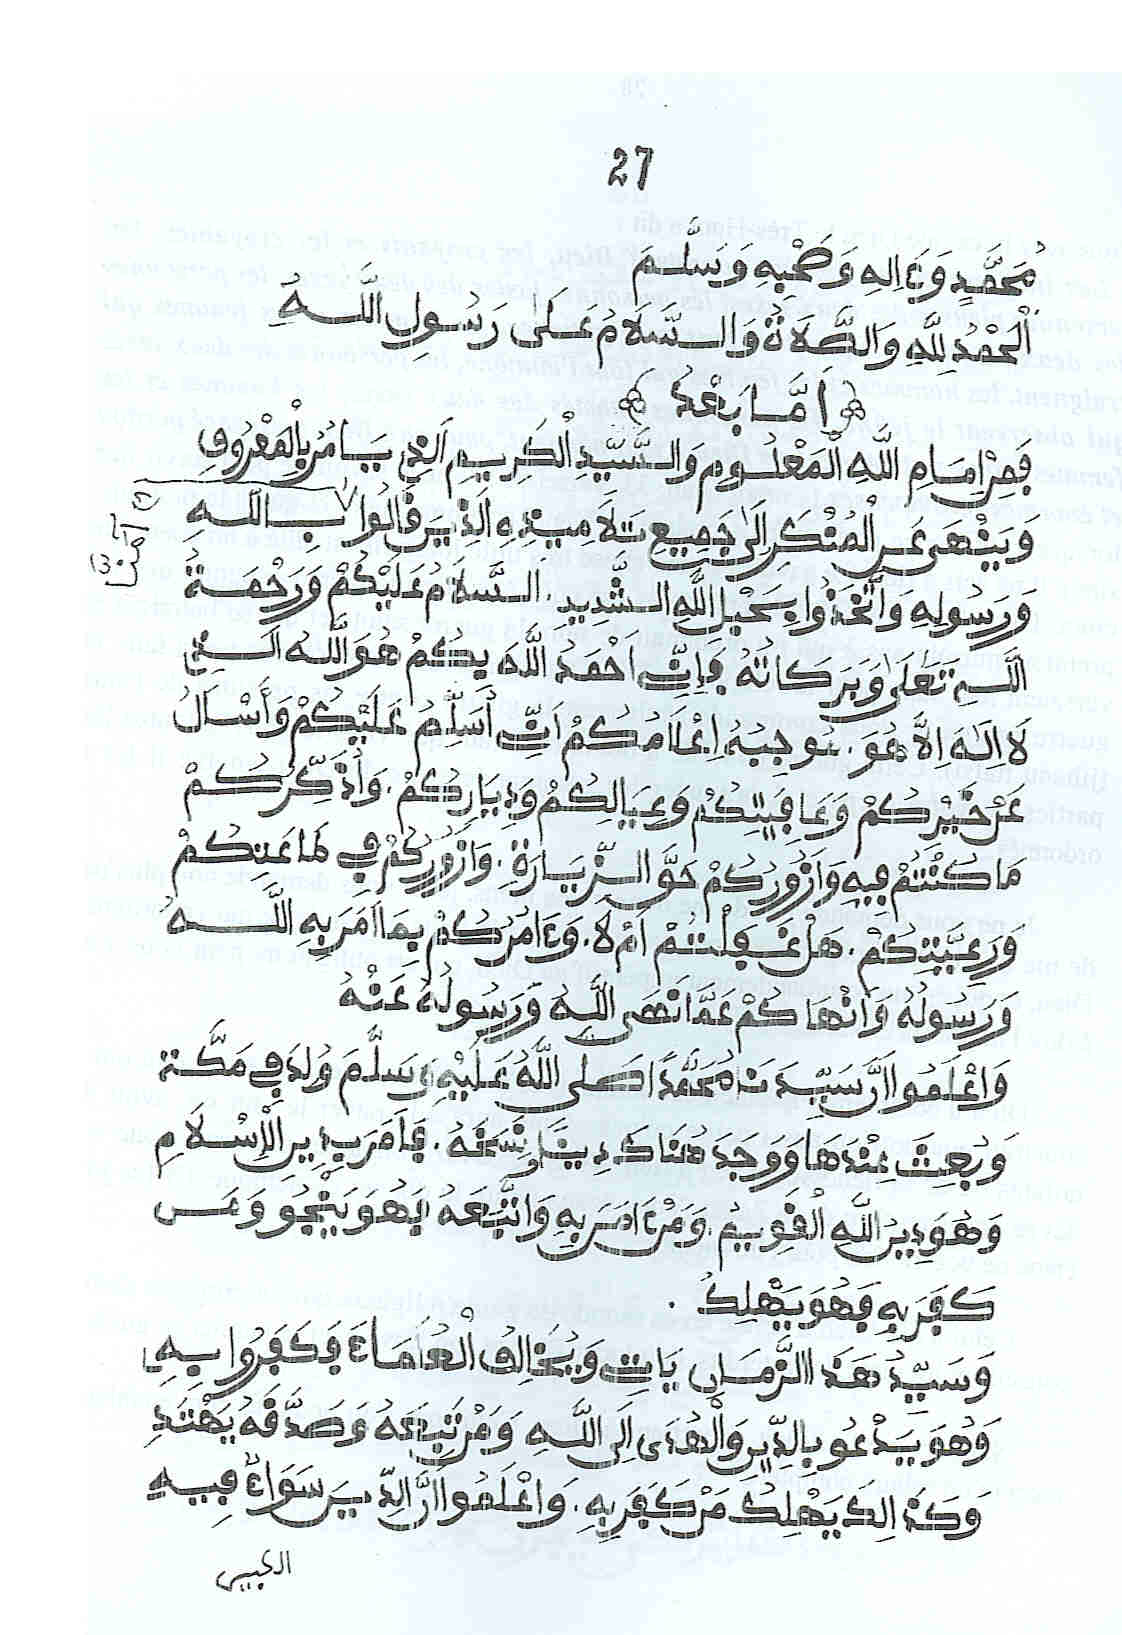 27
مُحَمَّدٍ وَءَالِهِ وَصَحْبِهِ وَسَلَّمَ
اَلْحَمْدُ لِلَّهِ وَالصَّلَاةُ وَالسَّلَامُ عَلَىٰ رَسُولِ اللَّهِ
اَمَّا بَعْدُ
فَمِنْ اِمَامِ اللَّهِ الْمَعْلُومِ وَالسَّيِّدِ الْكَرِيمِ الَّذِي يَامُرُ بِالْمَعْرُوفِ
وَيَنْهَى عَنِ الْمُنْكَرِ اِلَىٰ جَمِيعِ تَلَامِيذِهِ الَّذِينَ قَالُوا بِاللَّهِ
وَرَسُولِهِ وَاتَّخَذُوا بِحَبْلِ اللَّهِ الشَّدِيدِ. السَّلَامُ عَلَيْكُمْ وَرَحْمَةُ
اللَّهِ تَعَلَىٰ وَبَرَكَاتُهُ فَاِنِّي اَحْمَدُ اللَّهَ بِكُمْ هُوَ اللَّهُ الَّذِي
لَا اِلَهَ اِلَّا هُوَ. مُوجِبُهُ اِعْلَامُكُمْ اَنِّي اُسَلِّمُ عَلَيْكُمْ وَاَسْاَلُ
عَنْ خَيْرِكُمْ وَعَافِيَتِكُمْ وَعِيَالِكُمْ وَدِيَارِكُمْ. وَاُذَكِّرُكُمْ
مَا كُنْتُمْ فِيهِ وَاَزُورُكُمْ حَقَّ الزِّيَارَةِ. وَاَزُورُكُمْ فِي
وَرَعِيَّتِكُمْ. هَلْ غَفِلْتُمْ اَمْ لَا. وَءَامُرُكُمْ بِمَا اَمَرَ بِهِ اللَّهُ
وَرَسُولُهُ وَاَنْهَاكُمْ عَمَّا نَهَى اللَّهُ وَرَسُولُهُ عَنْهُ
وَاعْلَمُوا اَنَّ سَيِّدَنَا مُحَمَّدًا صَلَّى اللَّهُ عَلَيْهِ وَسَلَّمَ وُلِدَ فِي مَكَّةَ
وَبُعِثَ عِنْدَهَا وَوَجَدَ هُنَاكَ دِينًا نَسَخَهُ. فَاَمَرَ بِدِينِ الْاِسْلَامِ
وَهُوَ دِينُ اللَّهِ الْقَوِيمِ. وَمَنْ ءَامَنَ بِهِ وَاتَّبَعَهُ فَهُوَ يَنْجُو وَمَن
كَفَرَ بِهِ فَهُوَ يَهْلِكُ.
وَسَيِّدُ هَذَا الزَّمَانِ يَاتِي وَيُخَالِفُ الْعُلَمَاءَ فَكَفَرُوا بِهِ
وَهُوَ يَدْعُو بِالدِّينِ وَالْهُدَى اِلَى اللَّهِ وَمَنْ تَبِعَهُ وَصَدَّقَهُ يَهْتَدِ
وَكَذَالِكَ يَهْلِكُ مَنْ كَفَرَ بِهِ. وَاعْلَمُوا اَنَّ الدِّينَ سَوَاءٌ فِيهِ
الكبير